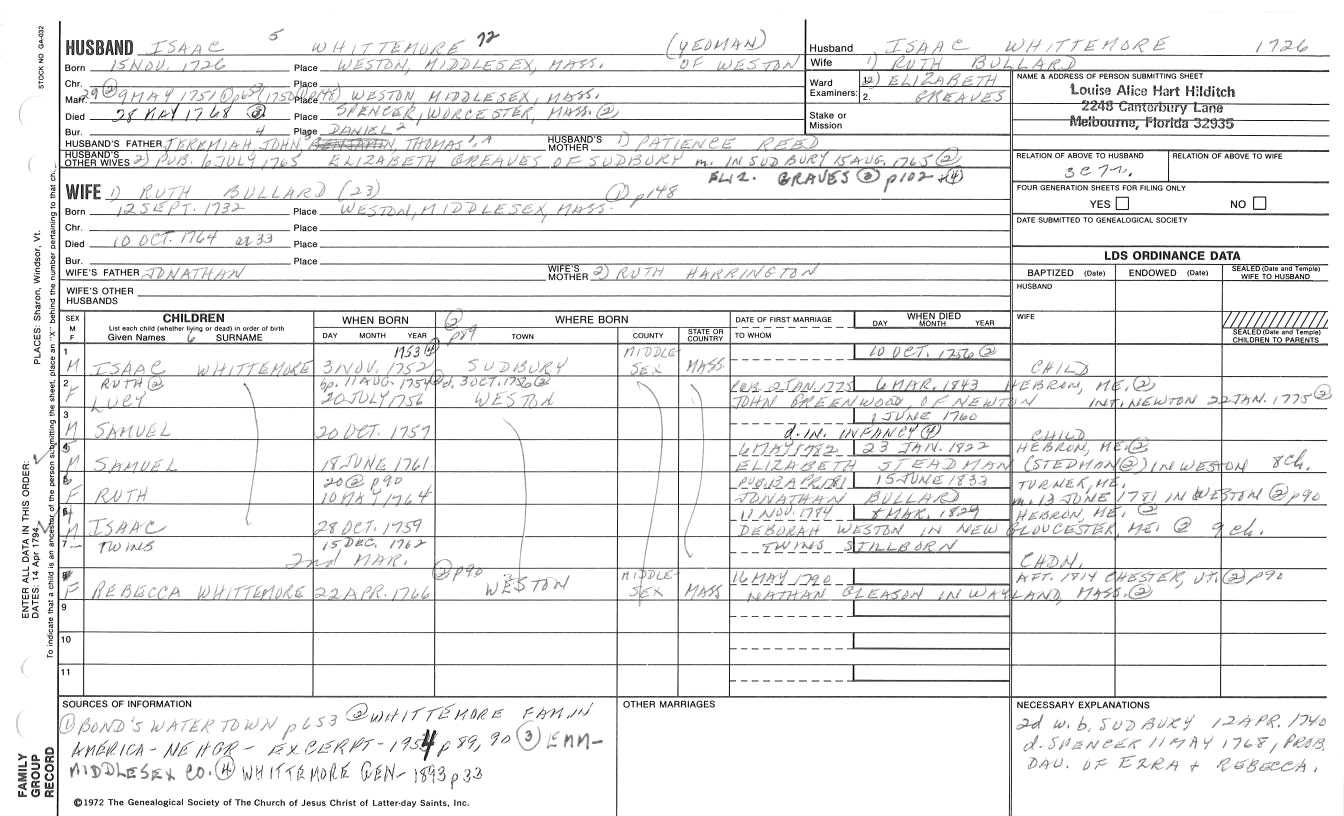 STOCK NO. GA-032
HUSBAND ISAAC 5 WHITTEMORE 72 (YEOMAN)
Born 15 NOV. 1726 Place WESTON, MIDDLESEX, MASS. OF WESTON
Chr.
Marr. 29 (2) 9 MAY 1751 (1) p653 1750 (1) p148 Place WESTON MIDDLESEX, MASS.
Died 28 MAY 1768 (3) Place SPENCER, WORCESTER, MASS. (2)
Bur. 4 Place DANIEL 2
HUSBAND'S FATHER JEREMIAH, JOHN, 3 BENJAMIN, THOMAS
HUSBAND'S MOTHER 1) PATIENCE REED
HUSBAND'S OTHER WIVES 2) PUB. 6 JULY 1765 ELIZABETH GREAVES OF SUDBURY m. IN SUDBURY 15 AUG. 1765 (2)
ELIZ. GRAVES (3) p102 + (4)
WIFE 1) RUTH BULLARD (23) (1) p148
Born 12 SEPT. 1732 Place WESTON, MIDDLESEX, MASS.
Chr. Place
Died 10 OCT. 1764 ae 33 Place
Bur. Place
WIFE'S FATHER JONATHAN
WIFE'S MOTHER 2) RUTH HARRINGTON
WIFE'S OTHER HUSBANDS
Husband ISAAC WHITTEMORE 1726
Wife 1) RUTH BULLARD
Ward 2) ELIZABETH
Examiners: 2. GREAVES
Stake or Mission
NAME & ADDRESS OF PERSON SUBMITTING SHEET
Louise Alice Hart Hilditch
2248 Canterbury Lane
Melbourne, Florida 32935
RELATION OF ABOVE TO HUSBAND RELATION OF ABOVE TO WIFE
FOUR GENERATION SHEETS FOR FILING ONLY
YES NO
DATE SUBMITTED TO GENEALOGICAL SOCIETY
LDS ORDINANCE DATA
BAPTIZED (Date) ENDOWED (Date) SEALED (Date and Temple) WIFE TO HUSBAND
HUSBAND
WIFE
SEALED (Date and Temple) CHILDREN TO PARENTS
SEX M F
CHILDREN
List each child (whether living or dead) in order of birth
Given Names 6 SURNAME
WHEN BORN
DAY MONTH YEAR
(2) p89
WHERE BORN
TOWN COUNTY STATE OR COUNTRY
DATE OF FIRST MARRIAGE
TO WHOM
WHEN DIED
DAY MONTH YEAR
1 1753 (4) MIDDLE- 10 OCT. 1756 (2)
M ISAAC WHITTEMORE 3 NOV. 1752 SUDBURY SEX MASS CHILD
2 RUTH (2) bp. 11 AUG. 1754 (2) d. 3 OCT. 1756 (2) PUB. 2 JAN. 1775 6 MAR. 1843 HEBRON, ME. (2)
F LUCY 20 JULY 1756 WESTON JOHN GREENWOOD OF NEWTON INT. NEWTON 22 JAN. 1775 (2)
3 1 JUNE 1760
M SAMUEL 20 OCT. 1757 d. IN INFANCY (4) CHILD
5 6 MAY 1782 23 JAN. 1822 HEBRON, ME. (2)
M SAMUEL 18 JUNE 1761 ELIZABETH STEADMAN (STEDMAN (2)) IN WESTON 8 ch.
6 20 (2) p90 PUB. 13 APR. 1781 15 JUNE 1833 TURNER, ME.
F RUTH 10 MAY 1764 JONATHAN BULLARD m. 13 JUNE 1781 IN WESTON (2) p90
4 11 NOV. 1784 8 MAR. 1824 HEBRON, ME. (2)
M ISAAC 28 OCT. 1759 DEBORAH WESTON IN NEW GLOUCESTER, ME. (2) 9 ch.
7 TWINS 15 DEC. 1762 TWINS STILLBORN
2nd MAR. CHDN.
8 (2) p90 MIDDLE- 16 MAY 1790 AFT. 1814 CHESTER, VT. (2) p90
F REBECCA WHITTEMORE 22 APR. 1766 WESTON SEX MASS NATHAN GLEASON IN WAYLAND, MASS. (2)
9
10
11
SOURCES OF INFORMATION
(1) BOND'S WATERTOWN p 653 (2) WHITTEMORE FAM IN
AMERICA - NEHGR - EXCERPT - 1954 p 89, 90 (3) EMM-
MIDDLESEX CO. (4) WHITTEMORE GEN - 1893 p 33
OTHER MARRIAGES
NECESSARY EXPLANATIONS
2d w. b. SUDBURY 12 APR. 1740
d. SPENCER 11 MAY 1768, PROB.
DAU. OF EZRA + REBECCA.
©1972 The Genealogical Society of The Church of Jesus Christ of Latter-day Saints, Inc.
FAMILY GROUP RECORD
ENTER ALL DATA IN THIS ORDER:
DATES: 14 Apr 1794
PLACES: Sharon, Windsor, Vt.
To indicate that a child is an ancestor of the person submitting the sheet, place an "X" behind the number pertaining to that ch